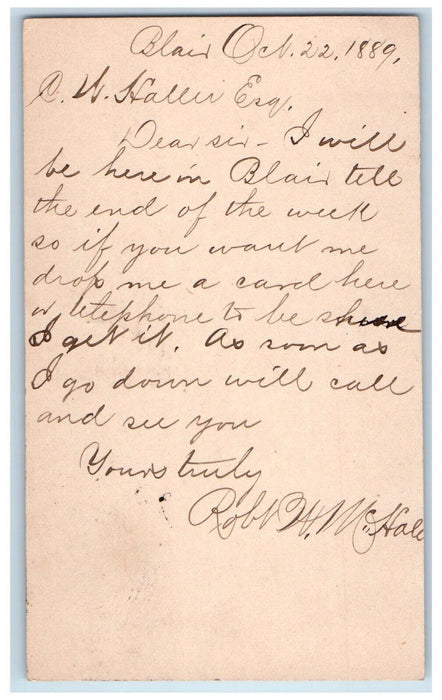 Blair Oct. 22, 1889.
C. W. Haller Esq.
Dear sir - I will
be here in Blair till
the end of the week
so if you want me
drop me a card here
or telephone to be shure
I get it. As soon as
I go down will call
and see you
Yours truly
Robt W. McHale